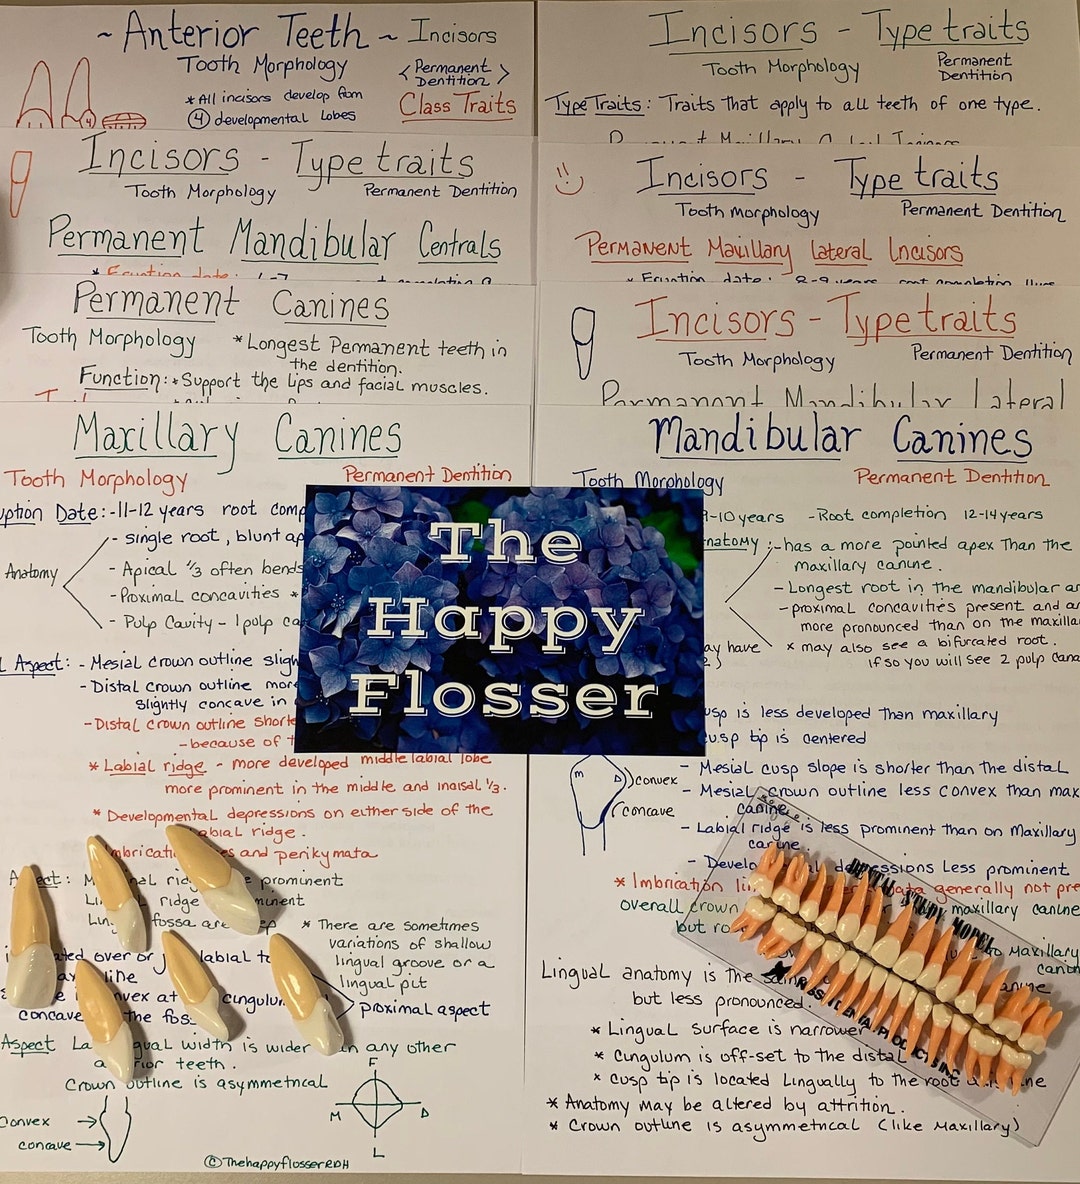 ~ Anterior Teeth ~ Incisors
Tooth Morphology
< Permanent Dentition >
* All incisors develop from
④ developmental lobes
Class Traits
4
Incisors - Type traits
Tooth Morphology
Permanent
Dentition
Type Traits: Traits that apply to all teeth of one type.
Incisors - Type traits
Tooth Morphology
Permanent Dentition
Permanent Mandibular Centrals
* Eruption date:
Incisors - Type traits
Tooth morphology
Permanent Dentition
Permanent Maxillary Lateral Incisors
* Eruption date: 8-9 years root completion 11
Permanent Canines
Tooth Morphology
* Longest Permanent teeth in
the dentition.
Function: * Support the lips and facial muscles.
Incisors - Type traits
Tooth Morphology
Permanent Dentition
Permanent Mandibular Lateral
Maxillary Canines
Tooth Morphology
Permanent Dentition
ption Date: - 11-12 years root comp
Anatomy
- single root, blunt ap
- Apical 1/3 often bends
- Proximal concavities *
- Pulp Cavity - 1 pulp ca
l Aspect: - Mesial crown outline sligh
- Distal crown outline more
slightly concave in
- Distal crown outline shorte
- because of t
* Labial ridge - more developed middle labial lobe
more prominent in the middle and incisal 1/3.
* Developmental depressions on either side of the
abial ridge.
mbricati es and perikymata
A ect: M nal ridg e prominent
Lin l ridge minent
Ling fossa are
* There are sometimes
variations of shallow
lingual groove or a
lingual pit
ated over or labial to
ax line
nvex at cingulum
concave the foss
proximal aspect
Aspect La gual width is wider an any other
a rior teeth.
Crown outline is asymmetrical
Convex
concave
F
M D
L
©ThehappyflosserRDH
Mandibular Canines
Tooth Morphology
Permanent Dentition
9-10 years - Root completion 12-14 years
natomy: - has a more pointed apex than the
maxillary canine.
- Longest root in the mandibular ar
- proximal concavities present and ar
more pronounced than on the maxilla
ay have
* may also see a bifurcated root.
if so you will see 2 pulp cana
usp is less developed than maxillary
cusp tip is centered
- Mesial cusp slope is shorter than the distal
- Mesial crown outline less convex than max
canine
m D
convex
concave
- Labial ridge is less prominent than on Maxillary
canine.
- Develo al depressions Less prominent
* Imbrication li ata generally not pre
overall crown maxillary canine
but ro to Maxillary
canin
Lingual anatomy is the
but less pronounced.
* Lingual surface is narrower
* Cingulum is off-set to the distal
* cusp tip is located Lingually to the root ne
* Anatomy may be altered by attrition.
* Crown outline is asymmetrical (like Maxillary)
The
Happy
Flosser
DENTAL STUDY MODEL